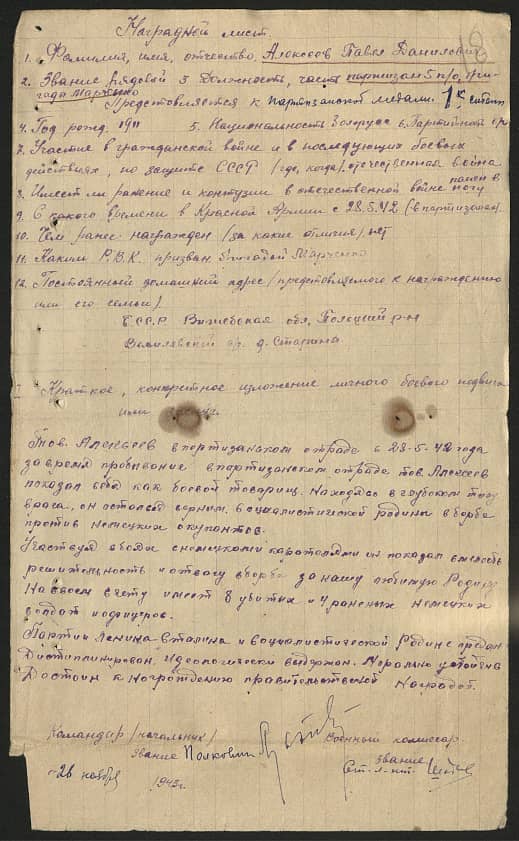 Наградной лист.
1. Фамилия, имя, отчество Алексеев Павел Данилович
2. Звание рядовой 3 Должность, часть партизан 5 п/о, бри-
гада Марченко
Представляется к партизанской медали 1й степени
4. Год рожд. 1911 5. Национальность Белорус 6. Партийность
7. Участие в гражданской войне и в последующих боевых
действиях, по защите СССР /где, когда/ отечественная война
8. Имеет ли ранение и контузии в отечественной войне ранен в ногу
9. С какого времени в Красной Армии с 28.5.42 (в партизанах)
10. Чем ранее награжден /за какие отличия/ нет
11. Каким Р.В.К. призван бригадой Марченко
12. Постоянный домашний адрес /представляемого к награждению
или его семьи/
БССР Витебская обл, Полоцкий р-н
д. Старина
Краткое, конкретное изложение личного боевого подвига
или
Тов. Алексеев в партизанском отраде с 28-5-42 года
за время пребывание в партизанском отраде тов. Алексеев
показал себя как боевой товарищ. Находясь в глубоком тылу
врага, он остался верным социалистической родины в борбе
против немецких окупантов.
Участвуя в боях с немецкими карателями он показал смелость
решительность и отвагу в борбе за нашу любимую Родину
На своем счету имеет 8 убитых и 4 раненых немецких
солдат и офицеров.
Партии Ленина Сталина и социалистической Родине предан
Дисциплинирован, идеологически выдержан. Морально устойчив
Достоин к награждению правительственной наградой.
Командир /начальник/ Военный комиссар.
звание Полковник звание
Ст. л-нт.
26 ноября 1943г.